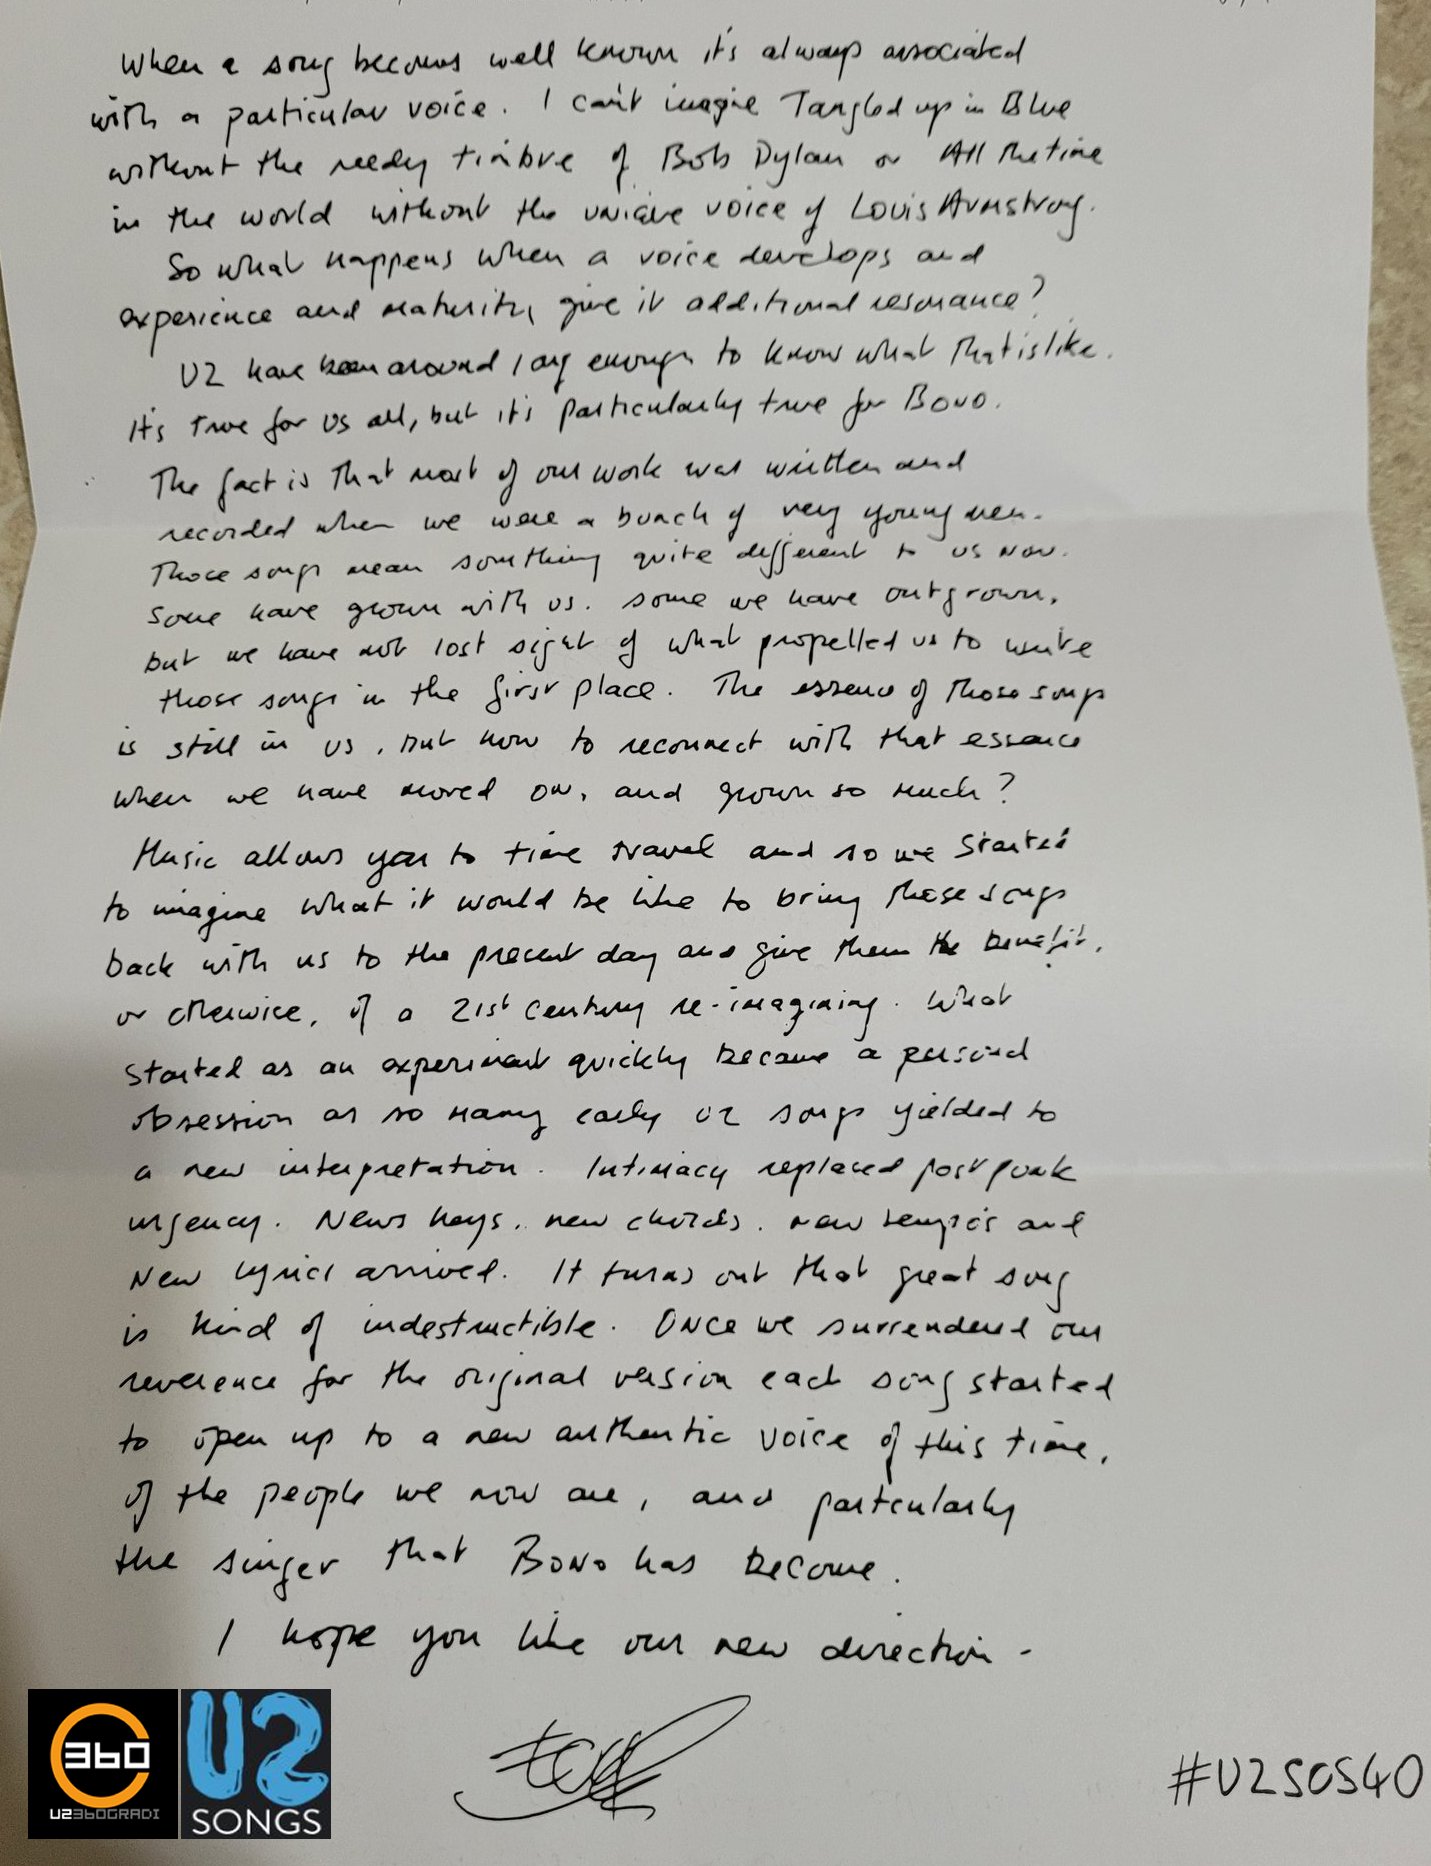 When a song becomes well known it's always associated
with a particular voice. I can't imagine Tangled up in Blue
without the reedy timbre of Bob Dylan or All the time
in the world without the unique voice of Louis Armstrong.
So what happens when a voice develops and
experience and maturity, give it additional resonance?
U2 have been around long enough to know what that is like.
It's true for us all, but it's particularly true for Bono.
The fact is that most of our work was written and
recorded when we were a bunch of very young men.
Those songs mean something quite different to us now.
Some have grown with us. some we have outgrown,
but we have not lost sight of what propelled us to write
those songs in the first place. The essence of those songs
is still in us, but how to reconnect with that essence
when we have moved on, and grown so much?
Music allows you to time travel and so we started
to imagine what it would be like to bring these songs
back with us to the present day and give them the benefit,
or otherwise, of a 21st century re-imagining. What
started as an experiment quickly became a personal
obsession as so many early U2 songs yielded to
a new interpretation. Intimacy replaced post punk
urgency. News keys, new chords, new tempo's and
New lyrics arrived. It turns out that great song
is kind of indestructible. Once we surrendered our
reverence for the original version each song started
to open up to a new authentic voice of this time,
of the people we now are, and particularly
the singer that Bono has become.
I hope you like our new direction -
360
U2360GRADI
U2
SONGS
#U2SOS40